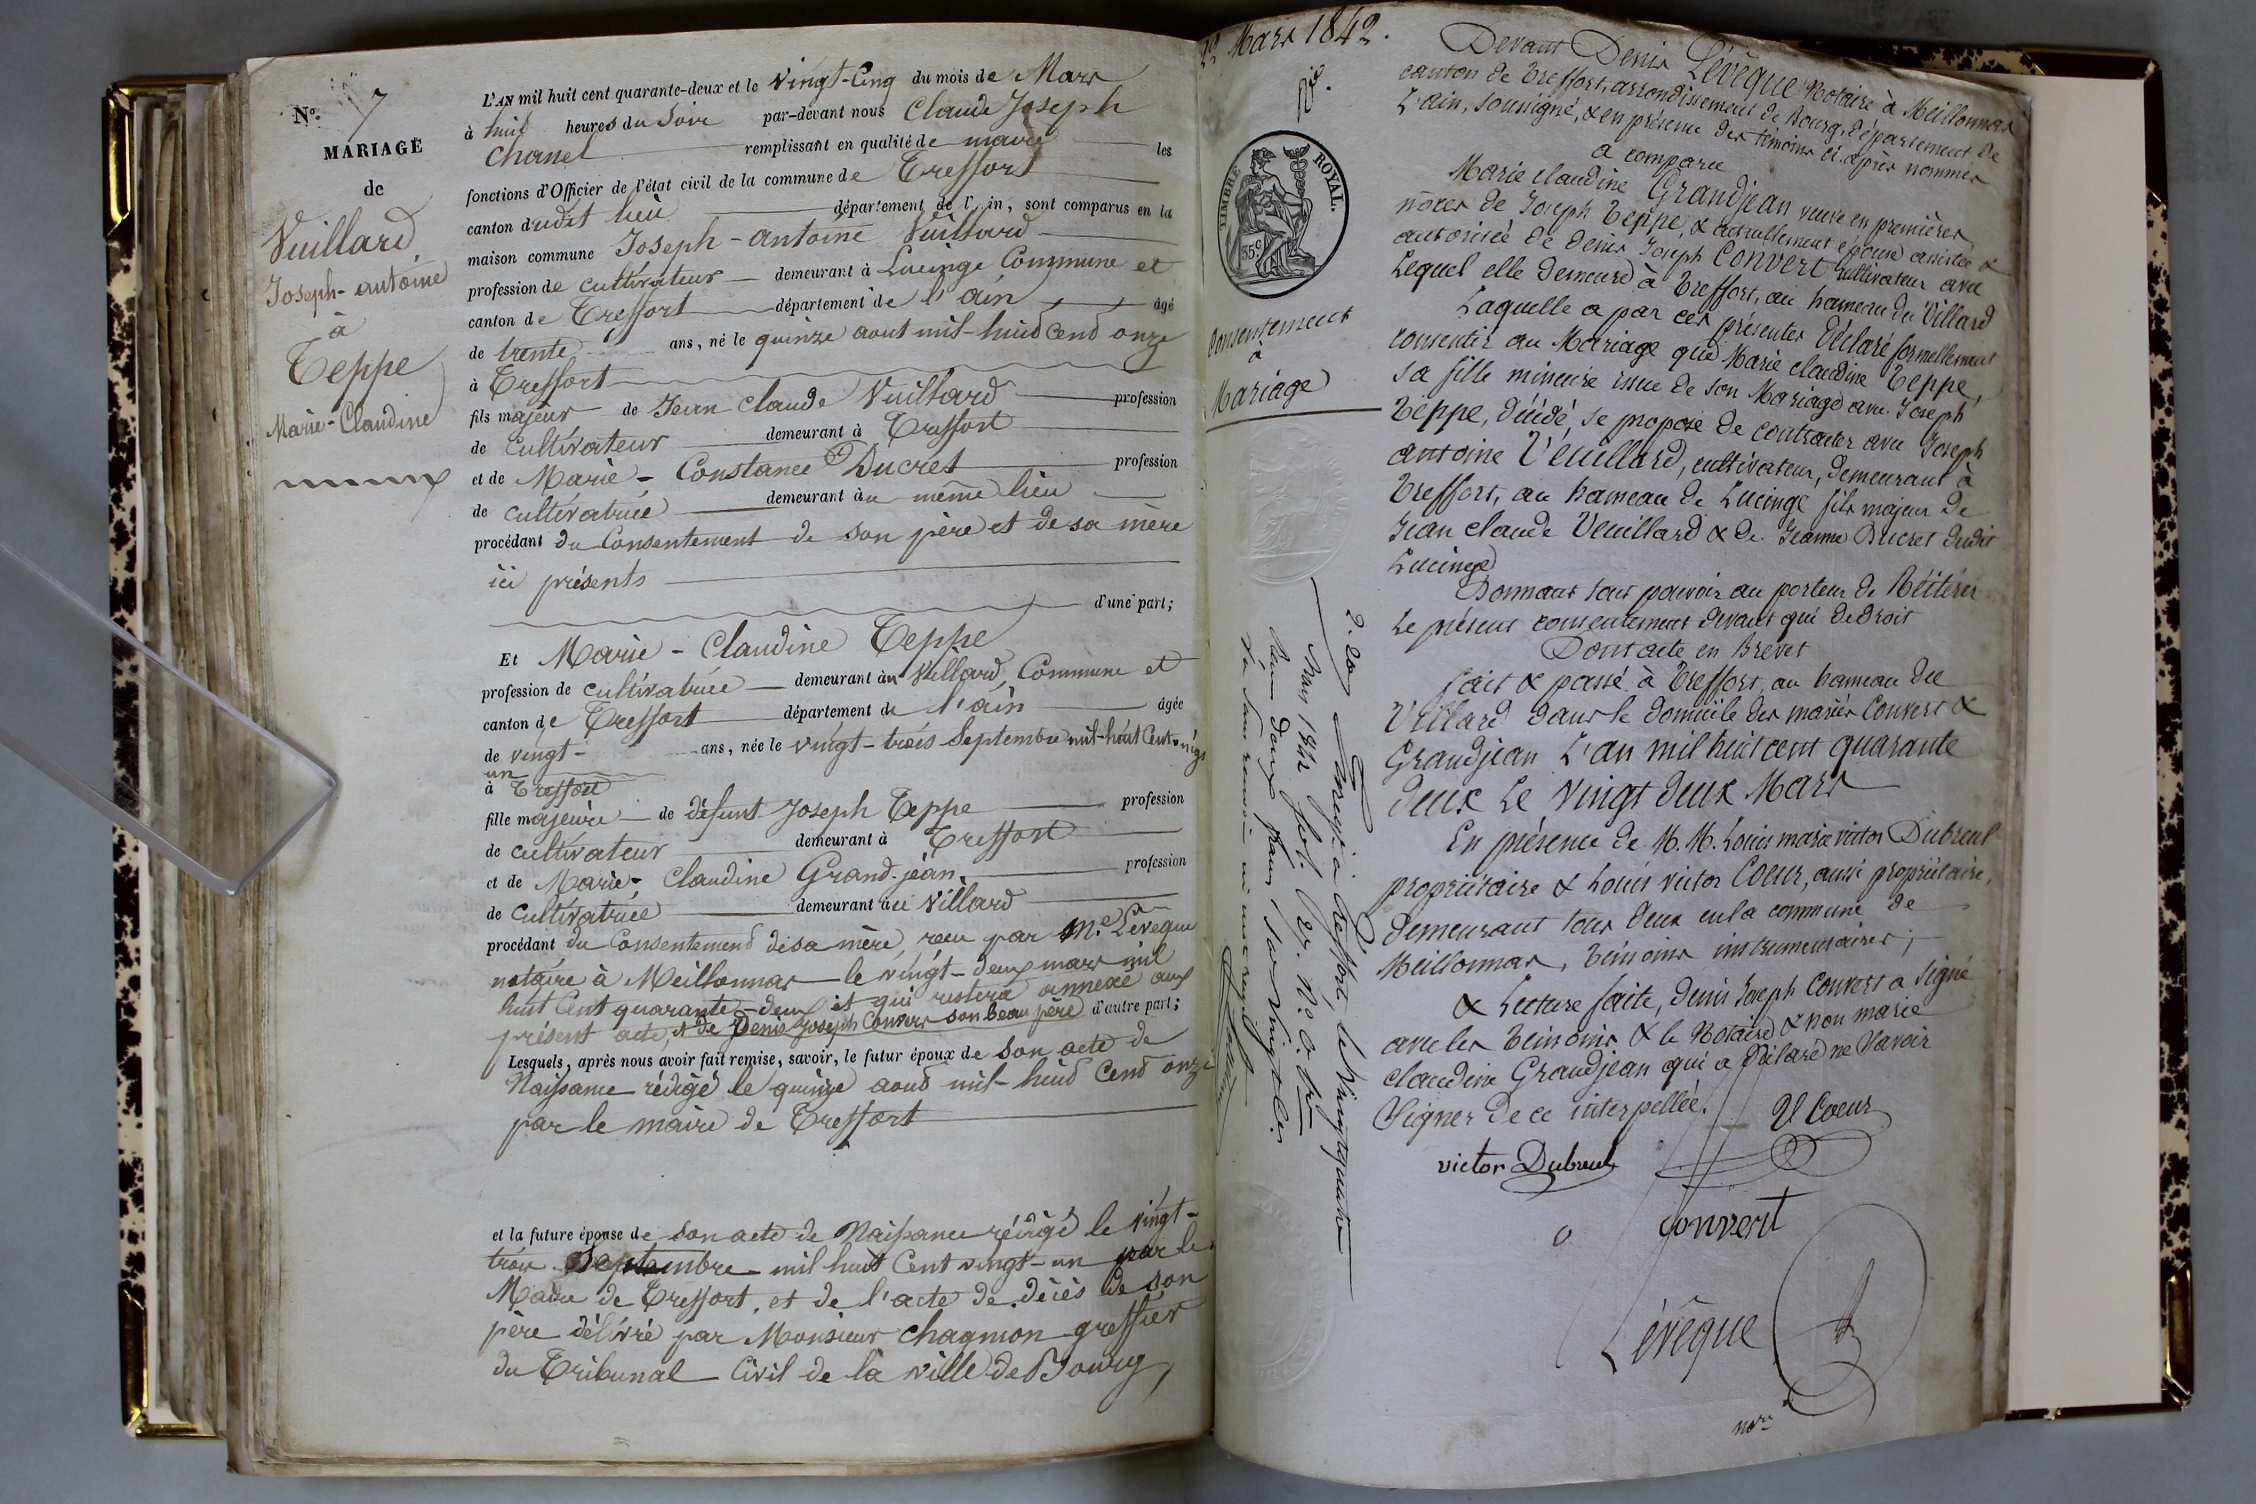 N.° 7
MARIAGE
de
Vuillard
Joseph-antoine
à
Teppe
Marie-Claudine
L'AN mil huit cent quarante-deux et le vingt-Cinq du mois de Mars
à huit heures du Soir par-devant nous Claude Joseph
Chanel remplissant en qualité de maire les
fonctions d'Officier de l'état civil de la commune de Treffort
canton dudit lieu département de l'Ain, sont comparus en la
maison commune Joseph-antoine Vuillard
profession de cultivateur demeurant à Lucinge Commune et
canton de Treffort département de l'ain âgé
de trente ans, né le quinze aout mil-huit Cent onze
à Treffort
fils majeur de Jean Claude Vuillard profession
de Cultivateur demeurant à Treffort
et de Marie-Constance Ducret profession
de cultivatrice demeurant au même lieu
procédant du Consentement de son père et de sa mère
ici présents
d'une part;
Et Marie-Claudine Teppe
profession de cultivatrice demeurant au Villard, Commune et
canton de Treffort département de l'ain âgée
de vingt- ans, née le vingt-trois Septembre mil-huit Cent vingt
un
à Treffort
fille majeure de défunt Joseph Teppe profession
de cultivateur demeurant à Treffort
et de Marie-Claudine Grand-jean profession
de cultivatrice demeurant au Villard
procédant du Consentement de sa mère, reçu par M.e Levêque
notaire à Meillonnas le vingt-deux mars mil
huit Cent quarante-deux et qui restera annexé aux
présent acte, et de Denis Joseph Convers son beau père d'autre part;
Lesquels, après nous avoir fait remise, savoir, le futur époux de son acte de
Naissance rédigé le quinze aout mil-huit Cent onze
par le maire de Treffort
et la future épouse de son acte de Naissance rédigé le vingt-
trois Septembre mil huit Cent vingt-un par le
Maire de Treffort, et de l'acte de décès de son
père délivré par Monsieur Chagmon greffier
du Tribunal Civil de la ville de Bourg,
22 Mars 1842.
TIMBRE ROYAL.
35c
Consentement
à
Mariage
Devant Denis Lévêque Notaire à Meillonnas
canton de Treffort, arrondissement de Bourg, département de
L'ain, soussigné, & en présence des témoins ci-après nommés
a comparu
Marie claudine Grandjean veuve en premières
nôces de Joseph Teppe, & actuellement épouse assistée &
autorisée de Denis Joseph Convert cultivateur avec
Lequel elle demeure à Treffort, au hameau du Villard
Laquelle a par ces présentes Déclaré formellement
consentir au Mariage que Marie claudine Teppe,
sa fille mineure issue de son Mariage avec Joseph
Teppe, décédé, se propose de contracter avec Joseph
antoine Veuillard, cultivateur, demeurant à
Treffort, au hameau de Lucinge fils majeur de
Jean claude Veuillard & de Jeanne Ducret dudit
Lucinge
Donnant tout pouvoir au porteur de Réitérer
Le présent consentement devant qui de droit
Dont acte en Brevet
fait & passé à Treffort, au hameau du
Villard dans le domicile des mariés Convert &
Grandjean L'an mil huit cent quarante
deux Le vingt deux Mars
En présence de M.M. Louis marie victor Dubreul
propriétaire & Louis victor Coeur, aussi propriétaire,
demeurant tous deux en la commune de
Meillonnas, témoins instrumentaires;
& Lecture faite, Denis Joseph Convert a signé
avec les témoins & le Notaire & non marie
claudine Grandjean qui a déclaré ne Savoir
Signer de ce interpellée.
V Coeur
victor Dubreul
Convert
Lévêque
nore
Enregistré à Treffort, le vingt quatre
Mars 1842 fol.